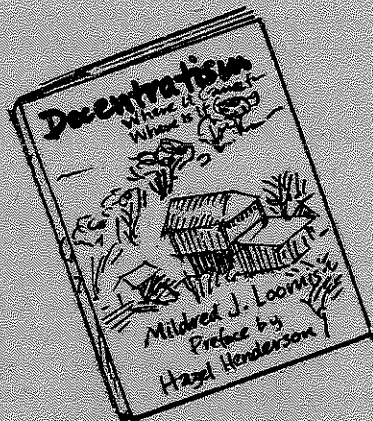 Decentratism
Where it Came fr
Where is it
Mildred J. Loomis
Preface by
Hazel Henderson